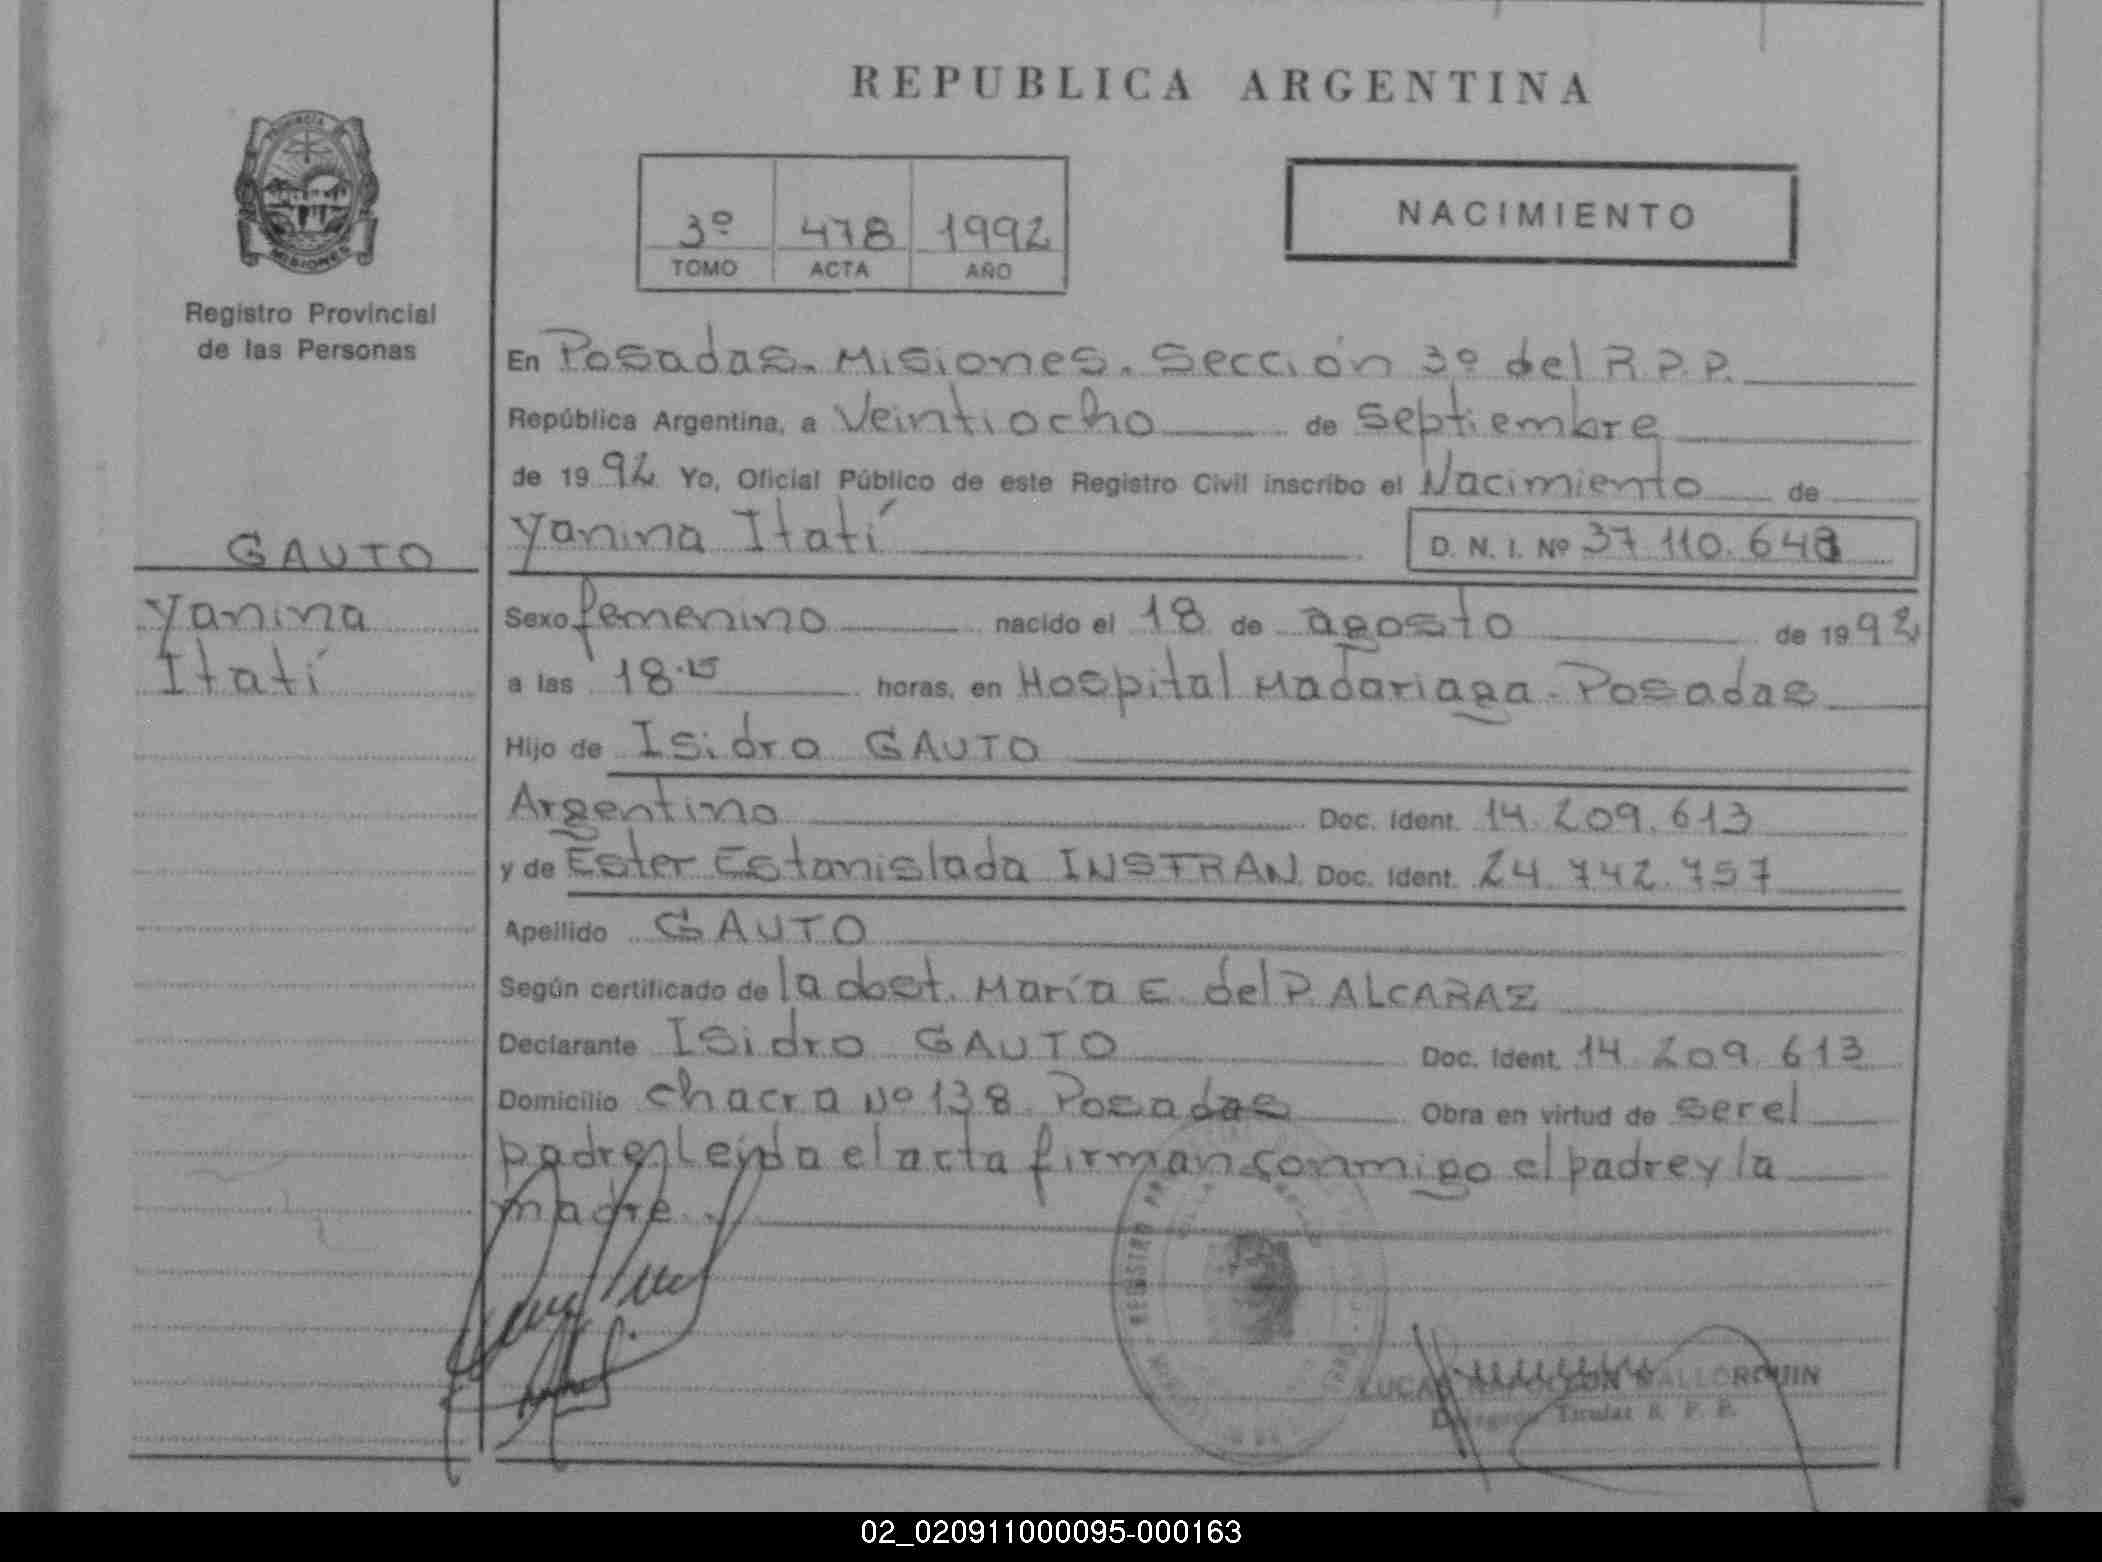 REPUBLICA ARGENTINA
PROVINCIA
MISIONES
Registro Provincial
de las Personas
3º 478 1992
TOMO ACTA AÑO
NACIMIENTO
En Posadas. Misiones. Sección 3º del R.P.P.
República Argentina, a Veintiocho de septiembre
de 1992 Yo, Oficial Público de este Registro Civil inscribo el Nacimiento de
Yanina Itatí D. N. I. Nº 37.110.648
GAUTO
Yanina
Itatí
Sexo femenino nacido el 18 de agosto de 1992
a las 18.15 horas, en Hospital Madariaga - Posadas
Hijo de Isidro GAUTO
Argentino Doc. Ident. 14.209.613
y de Ester Estanislada INSTRAN. Doc. Ident. 24.742.757
Apellido GAUTO
Según certificado de la obst. María E. del P. ALCARAZ
Declarante Isidro GAUTO Doc. Ident. 14.209.613
Domicilio Chacra Nº 138 Posadas Obra en virtud de ser el
padre. Leída el acta firman conmigo el padre y la
madre.
REGISTRO
LUCAS NAPOLEON MALLORQUIN
Delegado Titular R. P. P.
02_020911000095-000163